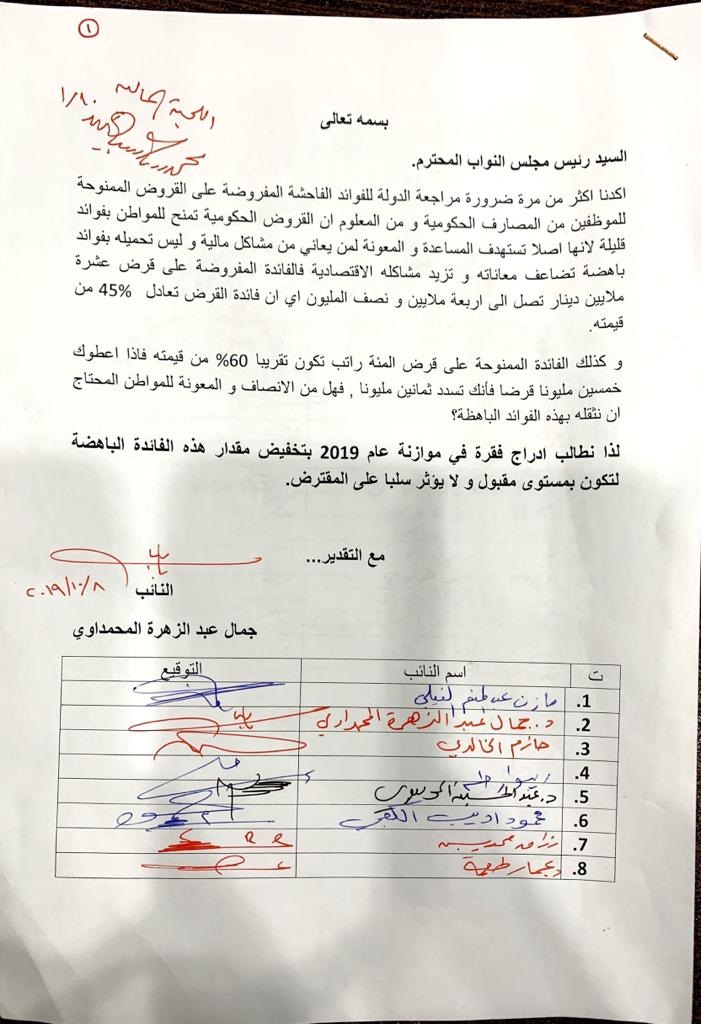 ١
اللجنة المالية
١/١٠
بسمه تعالى
السيد رئيس مجلس النواب المحترم.
اكدنا اكثر من مرة ضرورة مراجعة الدولة للفوائد الفاحشة المفروضة على القروض الممنوحة
للموظفين من المصارف الحكومية و من المعلوم ان القروض الحكومية تمنح للمواطن بفوائد
قليلة لانها اصلا تستهدف المساعدة و المعونة لمن يعاني من مشاكل مالية و ليس تحميله بفوائد
باهضة تضاعف معاناته و تزيد مشاكله الاقتصادية فالفائدة المفروضة على قرض عشرة
ملايين دينار تصل الى اربعة ملايين و نصف المليون اي ان فائدة القرض تعادل 45% من
قيمته.
و كذلك الفائدة الممنوحة على قرض المئة راتب تكون تقريبا 60% من قيمته فاذا اعطوك
خمسين مليونا قرضا فأنك تسدد ثمانين مليونا , فهل من الانصاف و المعونة للمواطن المحتاج
ان نثقله بهذه الفوائد الباهظة؟
لذا نطالب ادراج فقرة في موازنة عام 2019 بتخفيض مقدار هذه الفائدة الباهضة
لتكون بمستوى مقبول و لا يؤثر سلبا على المقترض.
مع التقدير...
النائب
٢٠١٩/١٠/٨
جمال عبد الزهرة المحمداوي
ت اسم النائب التوقيع
1. مازن عبد المنعم الفيلي
2. د. جمال عبد الزهرة المحمداوي
3. حازم الخالدي
4.
5. د. عبد الموسوي
6. محمود اديب
7. رزاق محيبس
8. د عمار طعمة